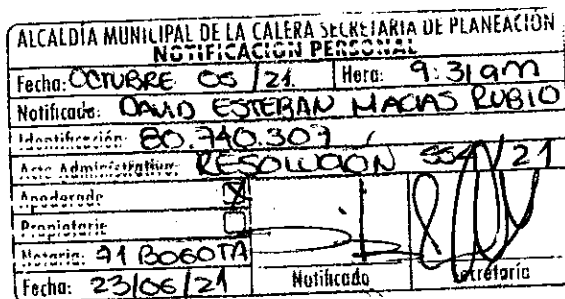 ALCALDÍA MUNICIPAL DE LA CALERA SECRETARIA DE PLANEACIÓN
NOTIFICACIÓN PERSONAL
Fecha: OCTUBRE 05 /21. Hora: 9:31 am
Notificado: DAVID ESTEBAN MACIAS RUBIO
Identificación: 80.740.307
Acto Administrativo: RESOLUCIÓN 554/21
Apoderado X
Propietario
Notaria: 41 BOGOTA
Fecha: 23/06/21 Notificado Secretaría